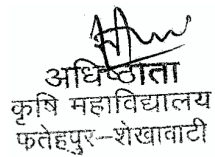 अधिष्ठाता
कृषि महाविद्यालय
फतेहपुर–शेखावाटी